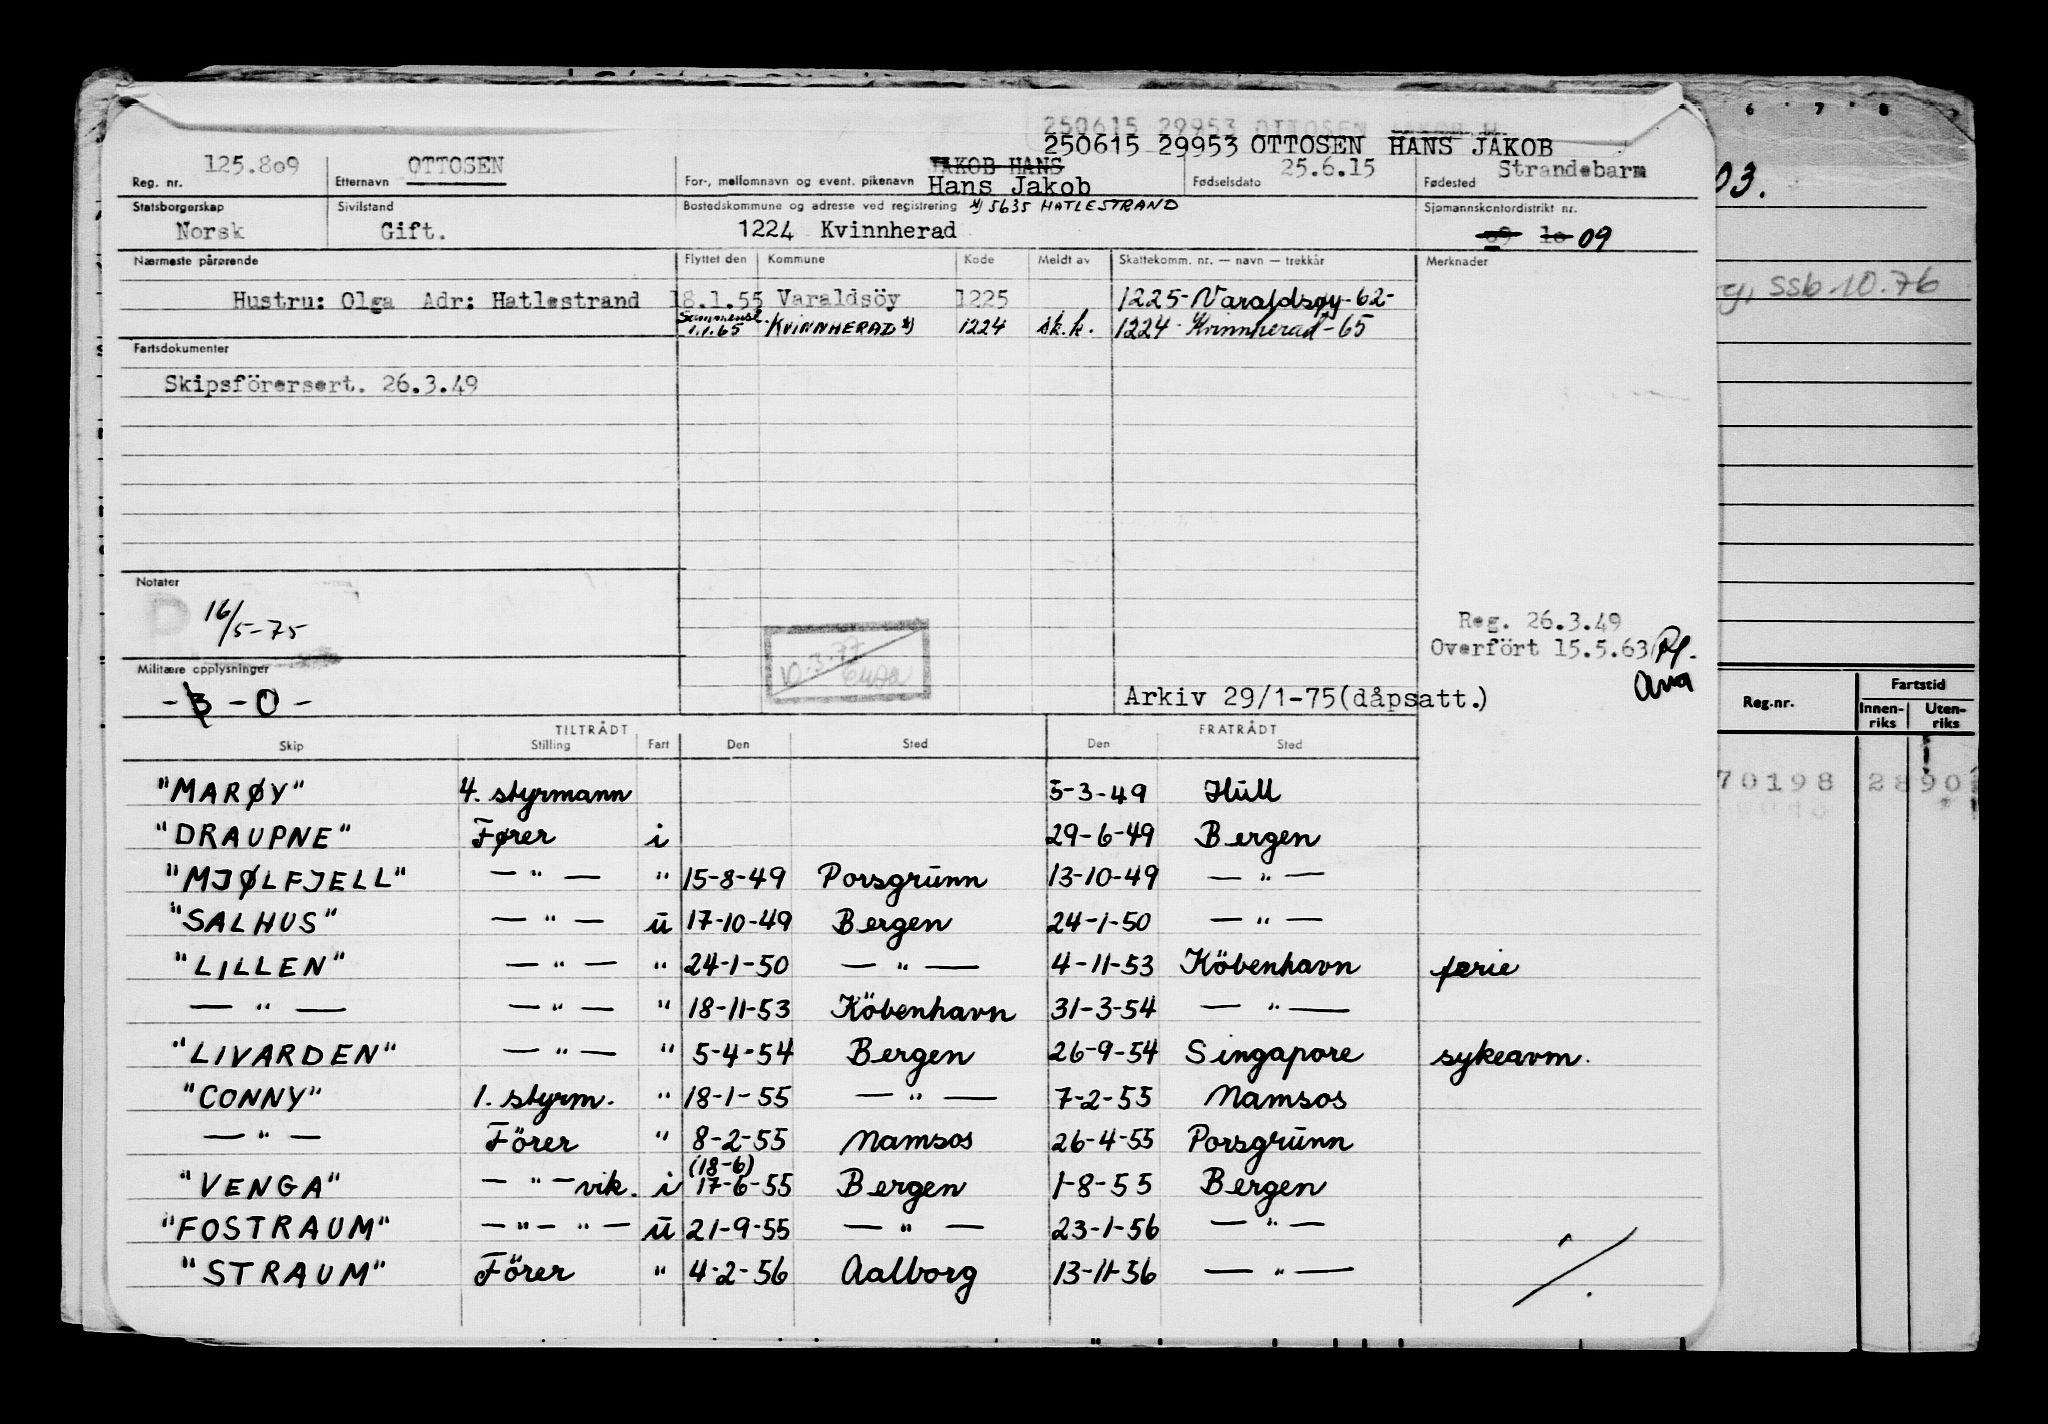 6 7 8
250615 29953 OTTOSEN
250615 29953 OTTOSEN HANS JAKOB
Reg. nr. 125.809 Etternavn OTTOSEN For-, mellomnavn og event. pikenavn JAKOB HANS Hans Jakob Fødselsdato 25.6.15 Fødested Strandebarm
03.
Statsborgerskap Sivilstand Bostedskommune og adresse ved registrering x) 5635 HATLESTRAND Sjømannskontordistrikt nr.
Norsk Gift. 1224 Kvinnherad 09 10 09
Nærmeste pårørende Flyttet den Kommune Kode Meldt av Skattekomm. nr. — navn — trekkår Merknader
ssb. 10.76
Hustru: Olga Adr: Hatlestrand 18.1.55 Varaldsöy 1225 1225-Varaldsøy-62-
Sammensl. 1.1.65 KVINNHERAD x) 1224 sk.k. 1224-Kvinnherad-65
Fartsdokumenter
Skipsförersert. 26.3.49
Notater
D 16/5-75
Reg. 26.3.49
Overfört 15.5.63
10.3.77
Militære opplysninger
-B-O-
Arkiv 29/1-75(dåpsatt.)
Reg.nr. Fartstid
Innenriks Utenriks
TILTRÅDT FRATRÅDT
Skip Stilling Fart Den Sted Den Sted
70198 2890
"MARØY" 4. styrmann 5-3-49 Hull
"DRAUPNE" Fører i 29-6-49 Bergen
"MJØLFJELL" — " — " 15-8-49 Porsgrunn 13-10-49 — " —
"SALHUS" — " — u 17-10-49 Bergen 24-1-50 — " —
"LILLEN" — " — " 24-1-50 — " — 4-11-53 Köbenhavn ferie
— " — — " — " 18-11-53 Köbenhavn 31-3-54 — " —
"LIVARDEN" — " — " 5-4-54 Bergen 26-9-54 Singapore sykeavm.
"CONNY" 1. styrm. " 18-1-55 — " — 7-2-55 Namsos
— " — Förer " 8-2-55 Namsos 26-4-55 Porsgrunn
(18-6)
"VENGA" — " — vik. i 17-6-55 Bergen 1-8-55 Bergen
"FOSTRAUM" — " — " — u 21-9-55 — " — 23-1-56 — " —
"STRAUM" Förer " 4-2-56 Aalborg 13-11-56 — " —